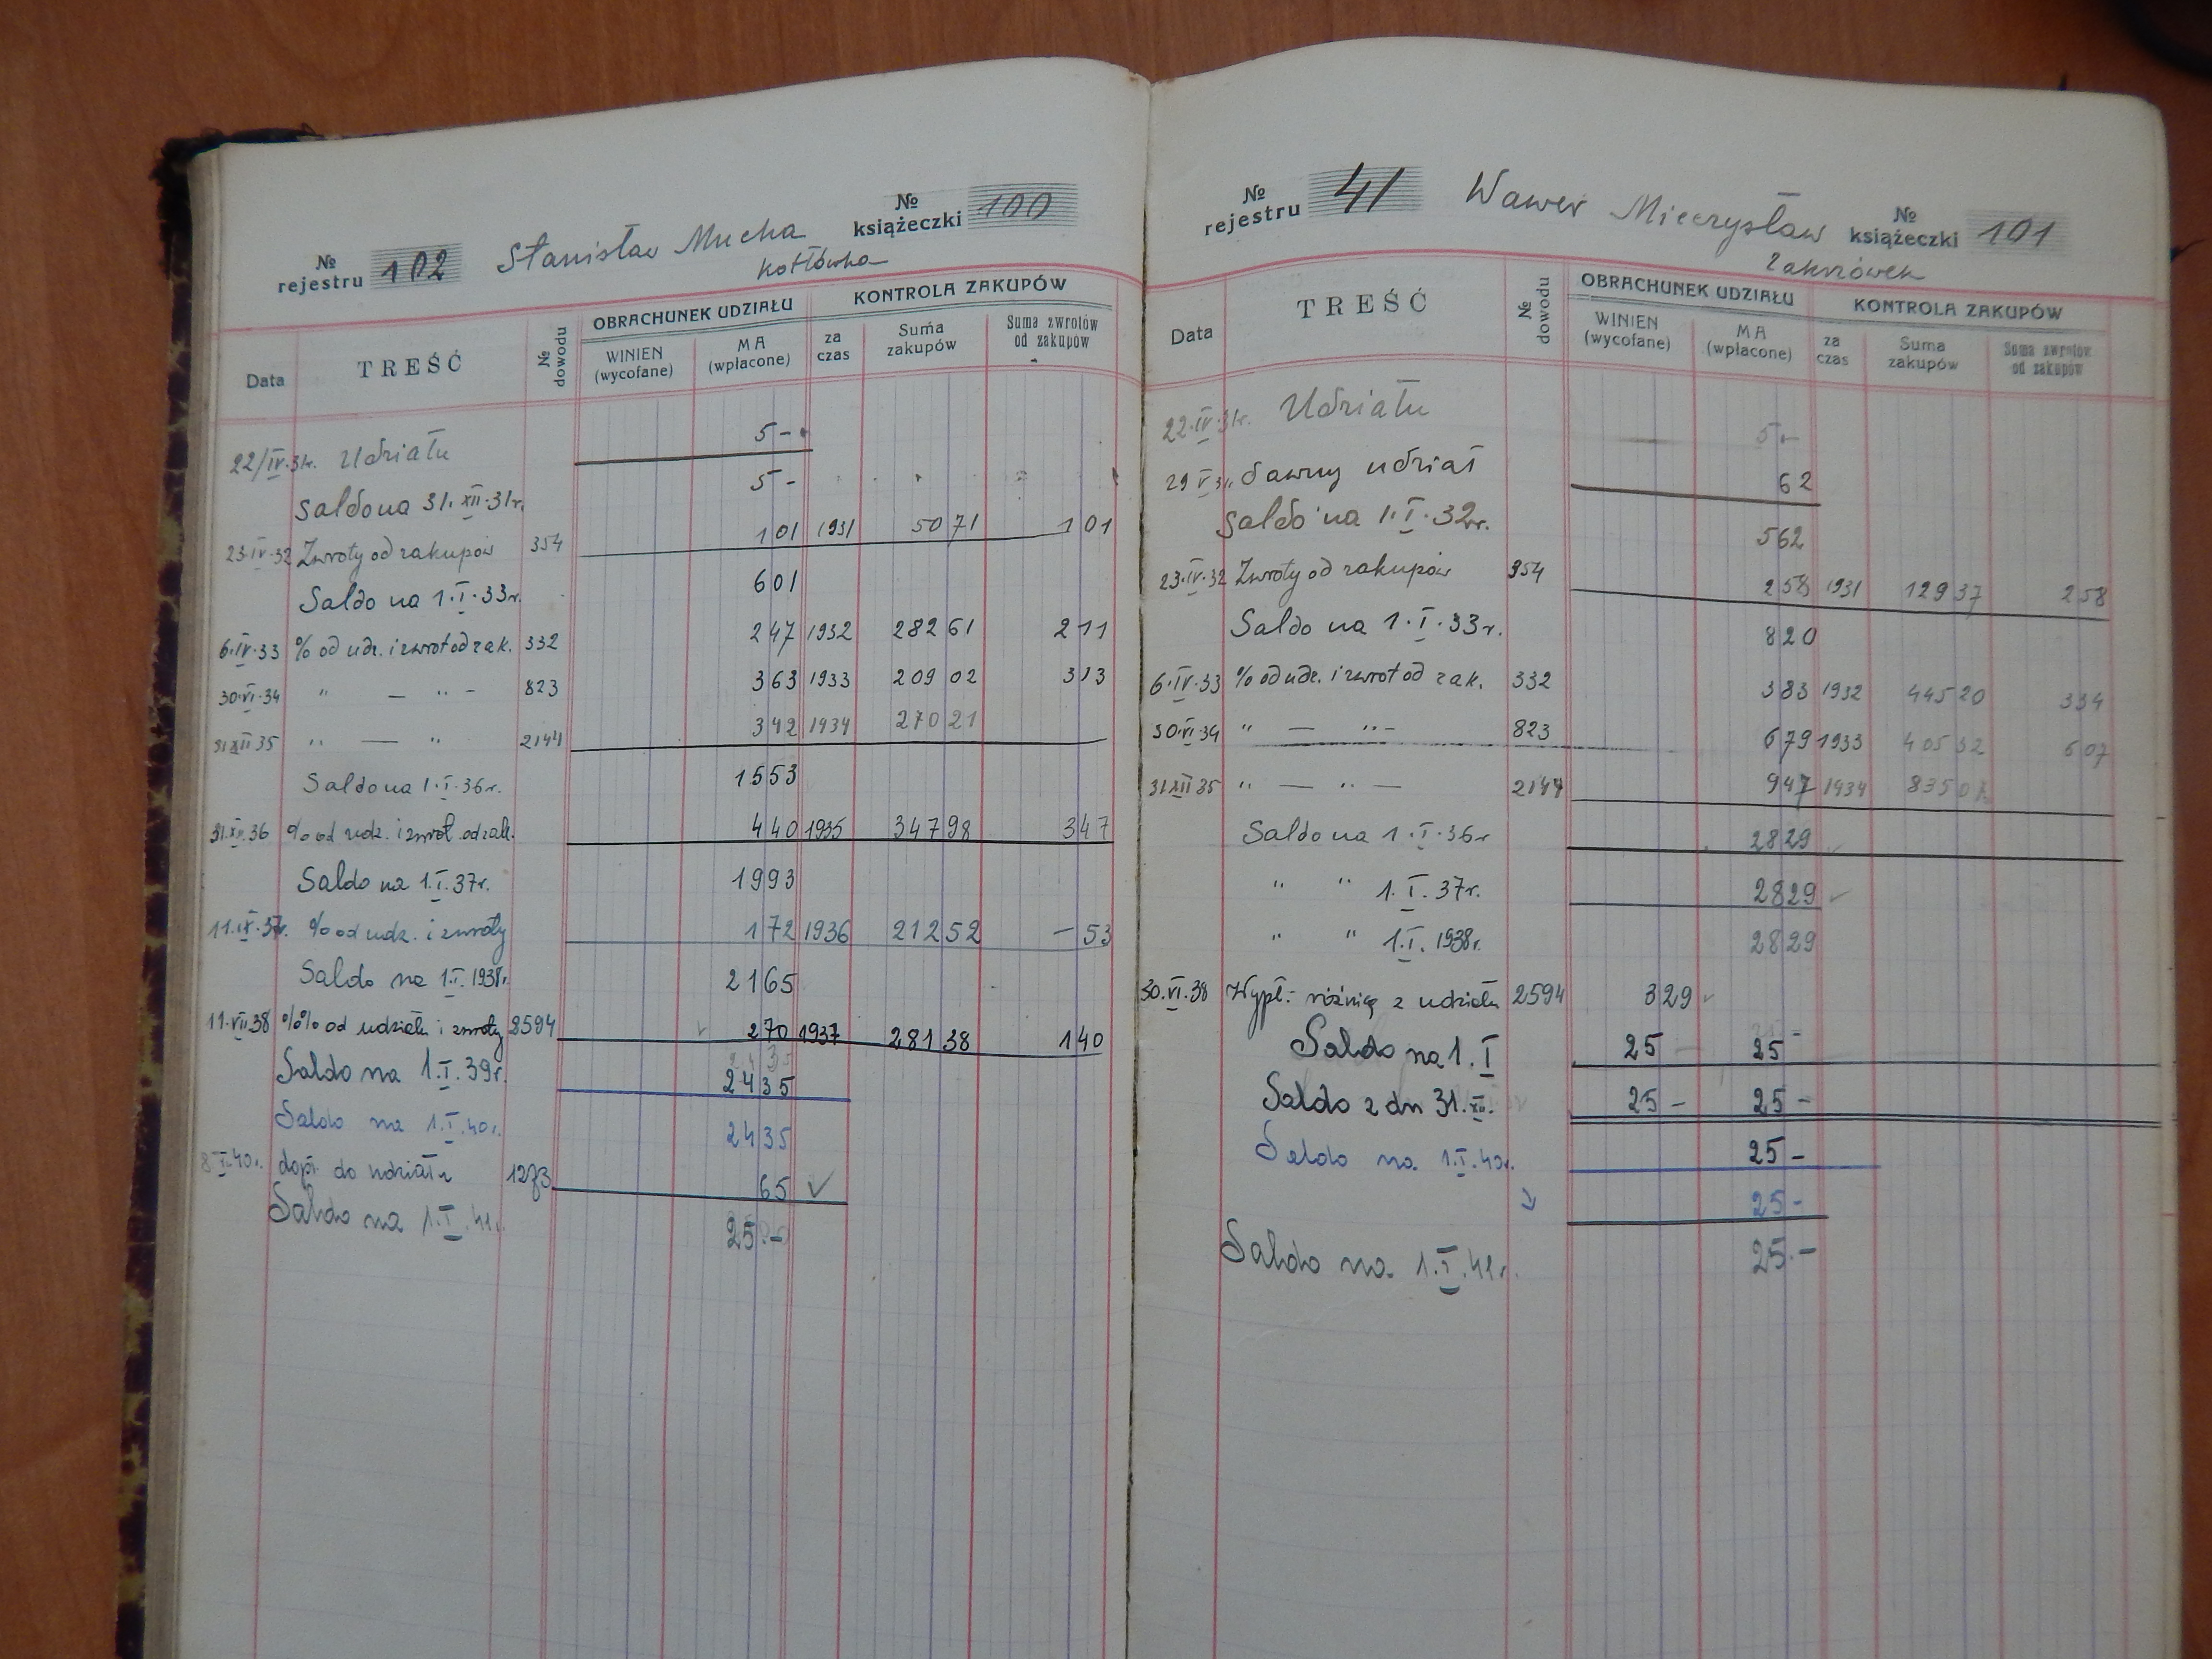 № rejestru 102 Stanisław Mucha № książeczki 100
Kotłówka
Data TREŚĆ № dowodu OBRACHUNEK UDZIAŁU KONTROLA ZAKUPÓW
WINIEN (wycofane) MA (wpłacone) za czas Suma zakupów Suma zwrotów od zakupów
22/IV.31r. Udziału 5 -
Saldo na 31.XII.31r. 5 -
23.IV.32 Zwroty od zakupów 354 101 1931 5071 101
Saldo na 1.I.33r. 601
6.IV.33 % od udz. i zwrot od zak. 332 247 1932 28261 211
30.VI.34 " — " - 823 363 1933 20902 313
31.XII.35 " — " 2144 342 1934 27021
Saldo na 1.I.36r. 1553
31.XII.36 % od udz. i zwrot od zak. 440 1935 34798 347
Saldo na 1.I.37r. 1993
11.IX.37r. % od udz. i zwroty 172 1936 21252 - 53
Saldo na 1.I.1938r. 2165
11.VII.38 %% od udziału i zwroty 2594 270 1937 28138 140
Saldo na 1.I.39r. 2435
Saldo na 1.I.40r. 2435
dopł. do udziału 65
Saldo na 1.I.41r. 25.-
№ rejestru 41 Wawer Mieczysław № książeczki 101
Zakrzówek
Data TREŚĆ № dowodu OBRACHUNEK UDZIAŁU KONTROLA ZAKUPÓW
WINIEN (wycofane) MA (wpłacone) za czas Suma zakupów Suma zwrotów od zakupów
22.IV.31r. Udziału 5 -
29 V 31. dawny udział 62
Saldo na 1.I.32r. 562
23.IV.32 Zwroty od zakupów 354 258 1931 12937 258
Saldo na 1.I.33r. 820
6.IV.33 % od udz. i zwrot od zak. 332 383 1932 44520 334
30.VI.34 " — " - 823 679 1933 40532 607
31.XII.35 " — " — 2144 947 1934
Saldo na 1.I.36r 2829
" " 1.I.37r. 2829
" " 1.I.1938r. 2829
30.VI.38 Wypł. różnicę z udziału 2594 329
Saldo na 1.I 25 25 -
Saldo z dn 31.XII. 25 - 25 -
Saldo na 1.I.40r. 25 -
25 -
Saldo na 1.I.41r. 25.-